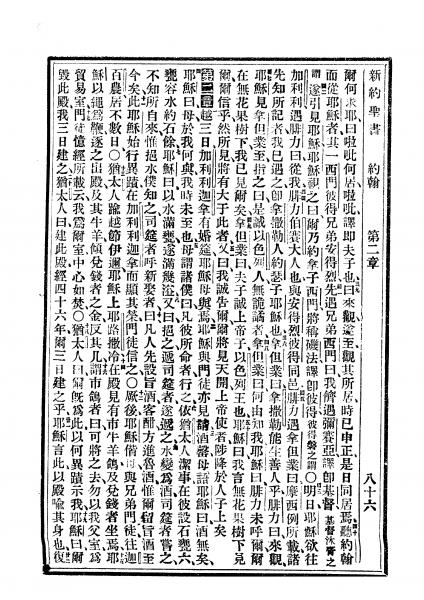 新約聖書 約翰 第二章 八十六
爾何求耶曰啦吡何居啦吡譯即夫子也曰來觀遂至觀其所居時已申正是日同居焉聽約翰
而從耶穌者其一西門彼得兄弟安得烈先遇兄弟西門曰我儕遇彌賽亞譯卽基督基督沐膏之
謂遂引見耶穌耶穌視之曰爾乃約拿子西門將稱磯法譯卽彼得彼得磐之謂〇明日耶穌欲往
加利利遇腓力曰從我腓力伯賽大人也與安得烈彼得同邑腓力遇拿但業曰摩西例所載諸
先知所記者我已遇之卽拿撒勒人約瑟子耶穌也拿但業曰拿撒勒能生善人乎腓力曰來觀
耶穌見拿但業至指之曰是誠以色列人無詭譎者拿但業曰何由知我耶穌曰腓力未呼爾爾
在無花果樹下我已見爾矣拿但業曰夫子誠上帝子以色列王也耶穌曰我言無花果樹下見
爾爾信乎然所見將有大於此者又曰我誠告爾爾將見天開上帝使者陟降於人子上矣
第二章越三日加利利迦拿有婚筵耶穌母與焉耶穌與門徒亦見請酒罄母語耶穌曰酒無矣
耶穌曰母於我何與我時未至也母謂諸僕曰凡彼所命者行之依猶太人潔事在彼設石甕六
甕容水約石餘耶穌曰以水滿甕遂滿幾溢又曰挹之遞司筵者遂遞之水變酒司筵者嘗之
不知所自來惟挹水僕知之司筵者呼新娶者曰凡人先設旨酒客酣方進魯酒惟爾留旨酒至
今矣此耶穌始行異蹟在加利利迦拿而顯其榮門徒信之〇厥後耶穌偕母與兄弟門徒往迦
百農居不數日〇猶太人踰越節伊邇耶穌上耶路撒冷在殿見有市牛羊鴿及兌錢者坐焉耶
穌以繩爲鞭逐之出殿及其牛羊傾兌錢者之金反其几謂市鴿者曰可將之去勿以我父室爲
貿易室門徒憶經所載云我爲爾室中心如焚〇猶太人曰爾旣爲此以何異蹟示我耶穌曰爾
毀此殿我三日建之猶太人曰建此殿經四十六年爾三日建之乎耶穌言此以殿喻其身也復